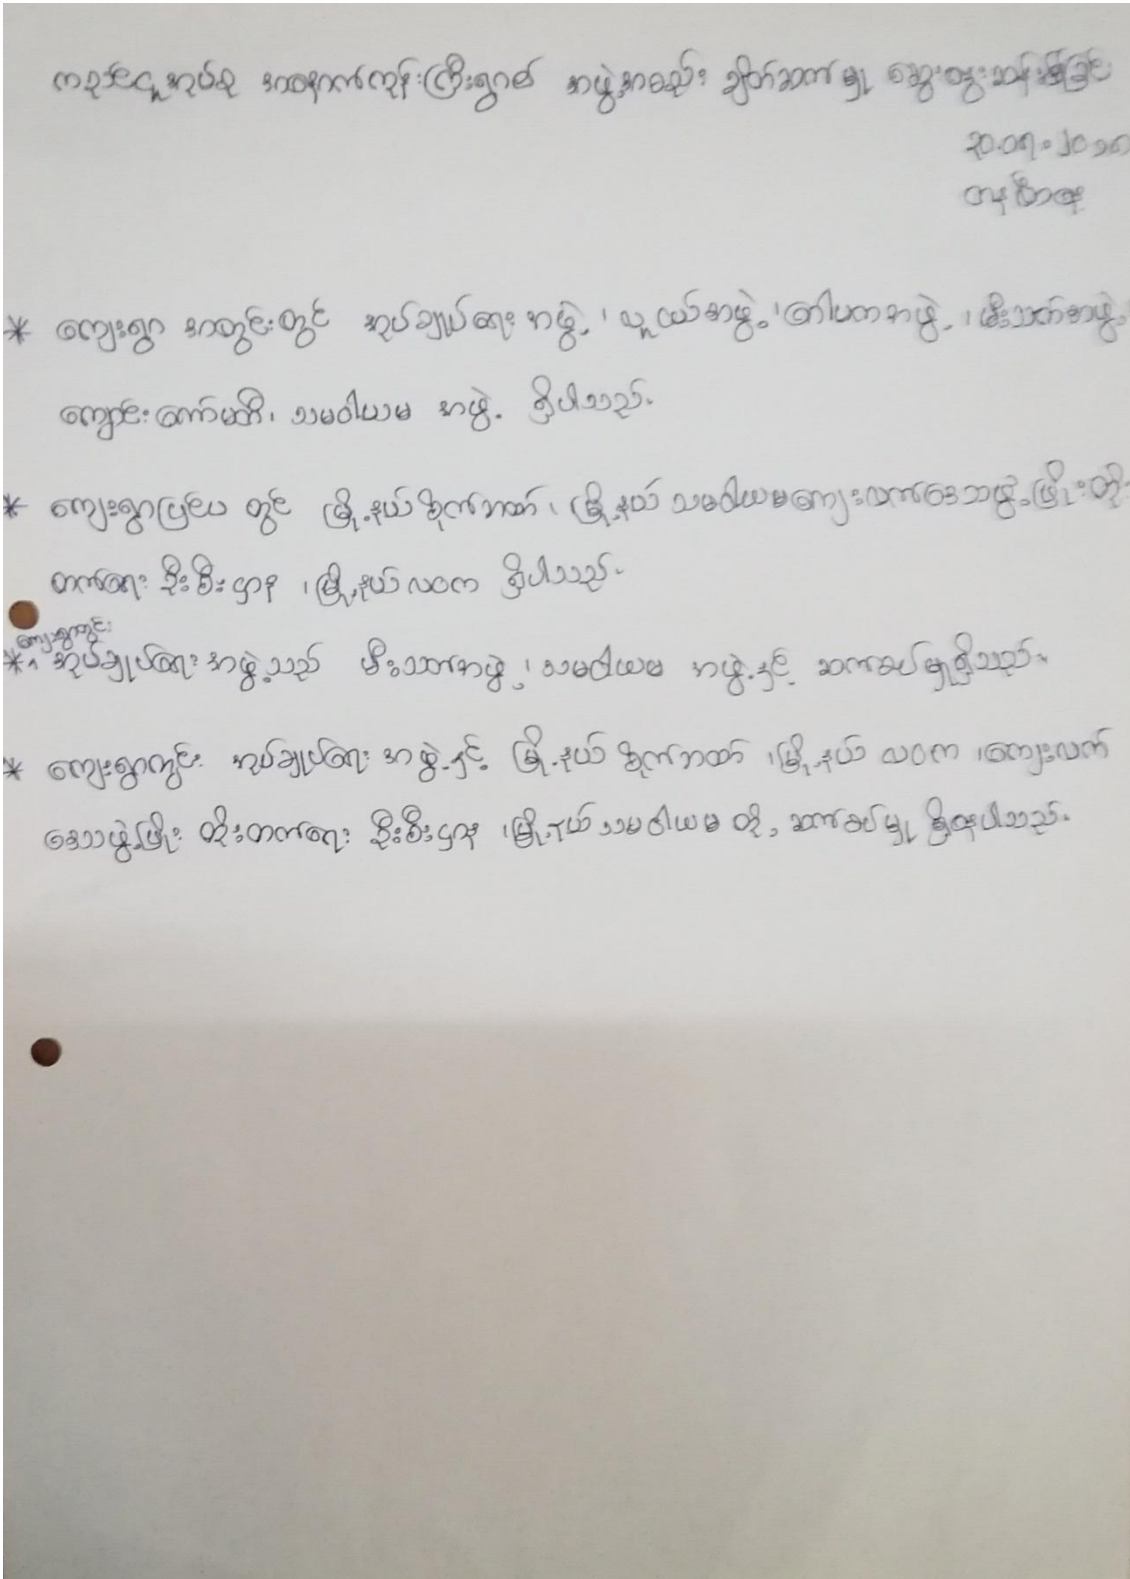 ကဉင်ငူအုပ်စု အနောက်ကုန်းကြီးရွာ၏ အဖွဲ့အစည်း ချိတ်ဆက်မှု ဆွေးနွေးဆန်းစစ်ခြင်း
၃၀.၀၇.၂၀၁၈
တနင်္လာနေ့
* ကျေးရွာ အတွင်းတွင် အုပ်ချုပ်ရေး အဖွဲ့၊ လူငယ်အဖွဲ့၊ ဂေါပကအဖွဲ့၊ မီးသတ်အဖွဲ့
ကျောင်းကော်မတီ၊ သမဝါယမ အဖွဲ့ ရှိပါသည်။
* ကျေးရွာပြင်ပ တွင် မြို့နယ်စိုက်ဘဏ်၊ မြို့နယ် သမဝါယမကျေးလက်ဒေသဖွံ့ဖြိုးတိုး
တက်ရေး ဦးစီးဌာန ၊မြို့နယ်လဝက ရှိပါသည်။
ကျေးရွာတွင်း
* ^ အုပ်ချုပ်ရေး အဖွဲ့သည် မီးသတ်အဖွဲ့၊ သမဝါယမ အဖွဲ့နှင့် ဆက်စပ်မှုရှိသည်။
* ကျေးရွာတွင်း အုပ်ချုပ်ရေး အဖွဲ့နှင့် မြို့နယ် စိုက်ဘဏ် ၊မြို့နယ် လဝက ၊ကျေးလက်
ဒေသဖွံ့ဖြိုး တိုးတက်ရေး ဦးစီးဌာန ၊မြို့နယ်သမဝါယမ တို့ ဆက်စပ်မှု ရှိနေပါသည်။